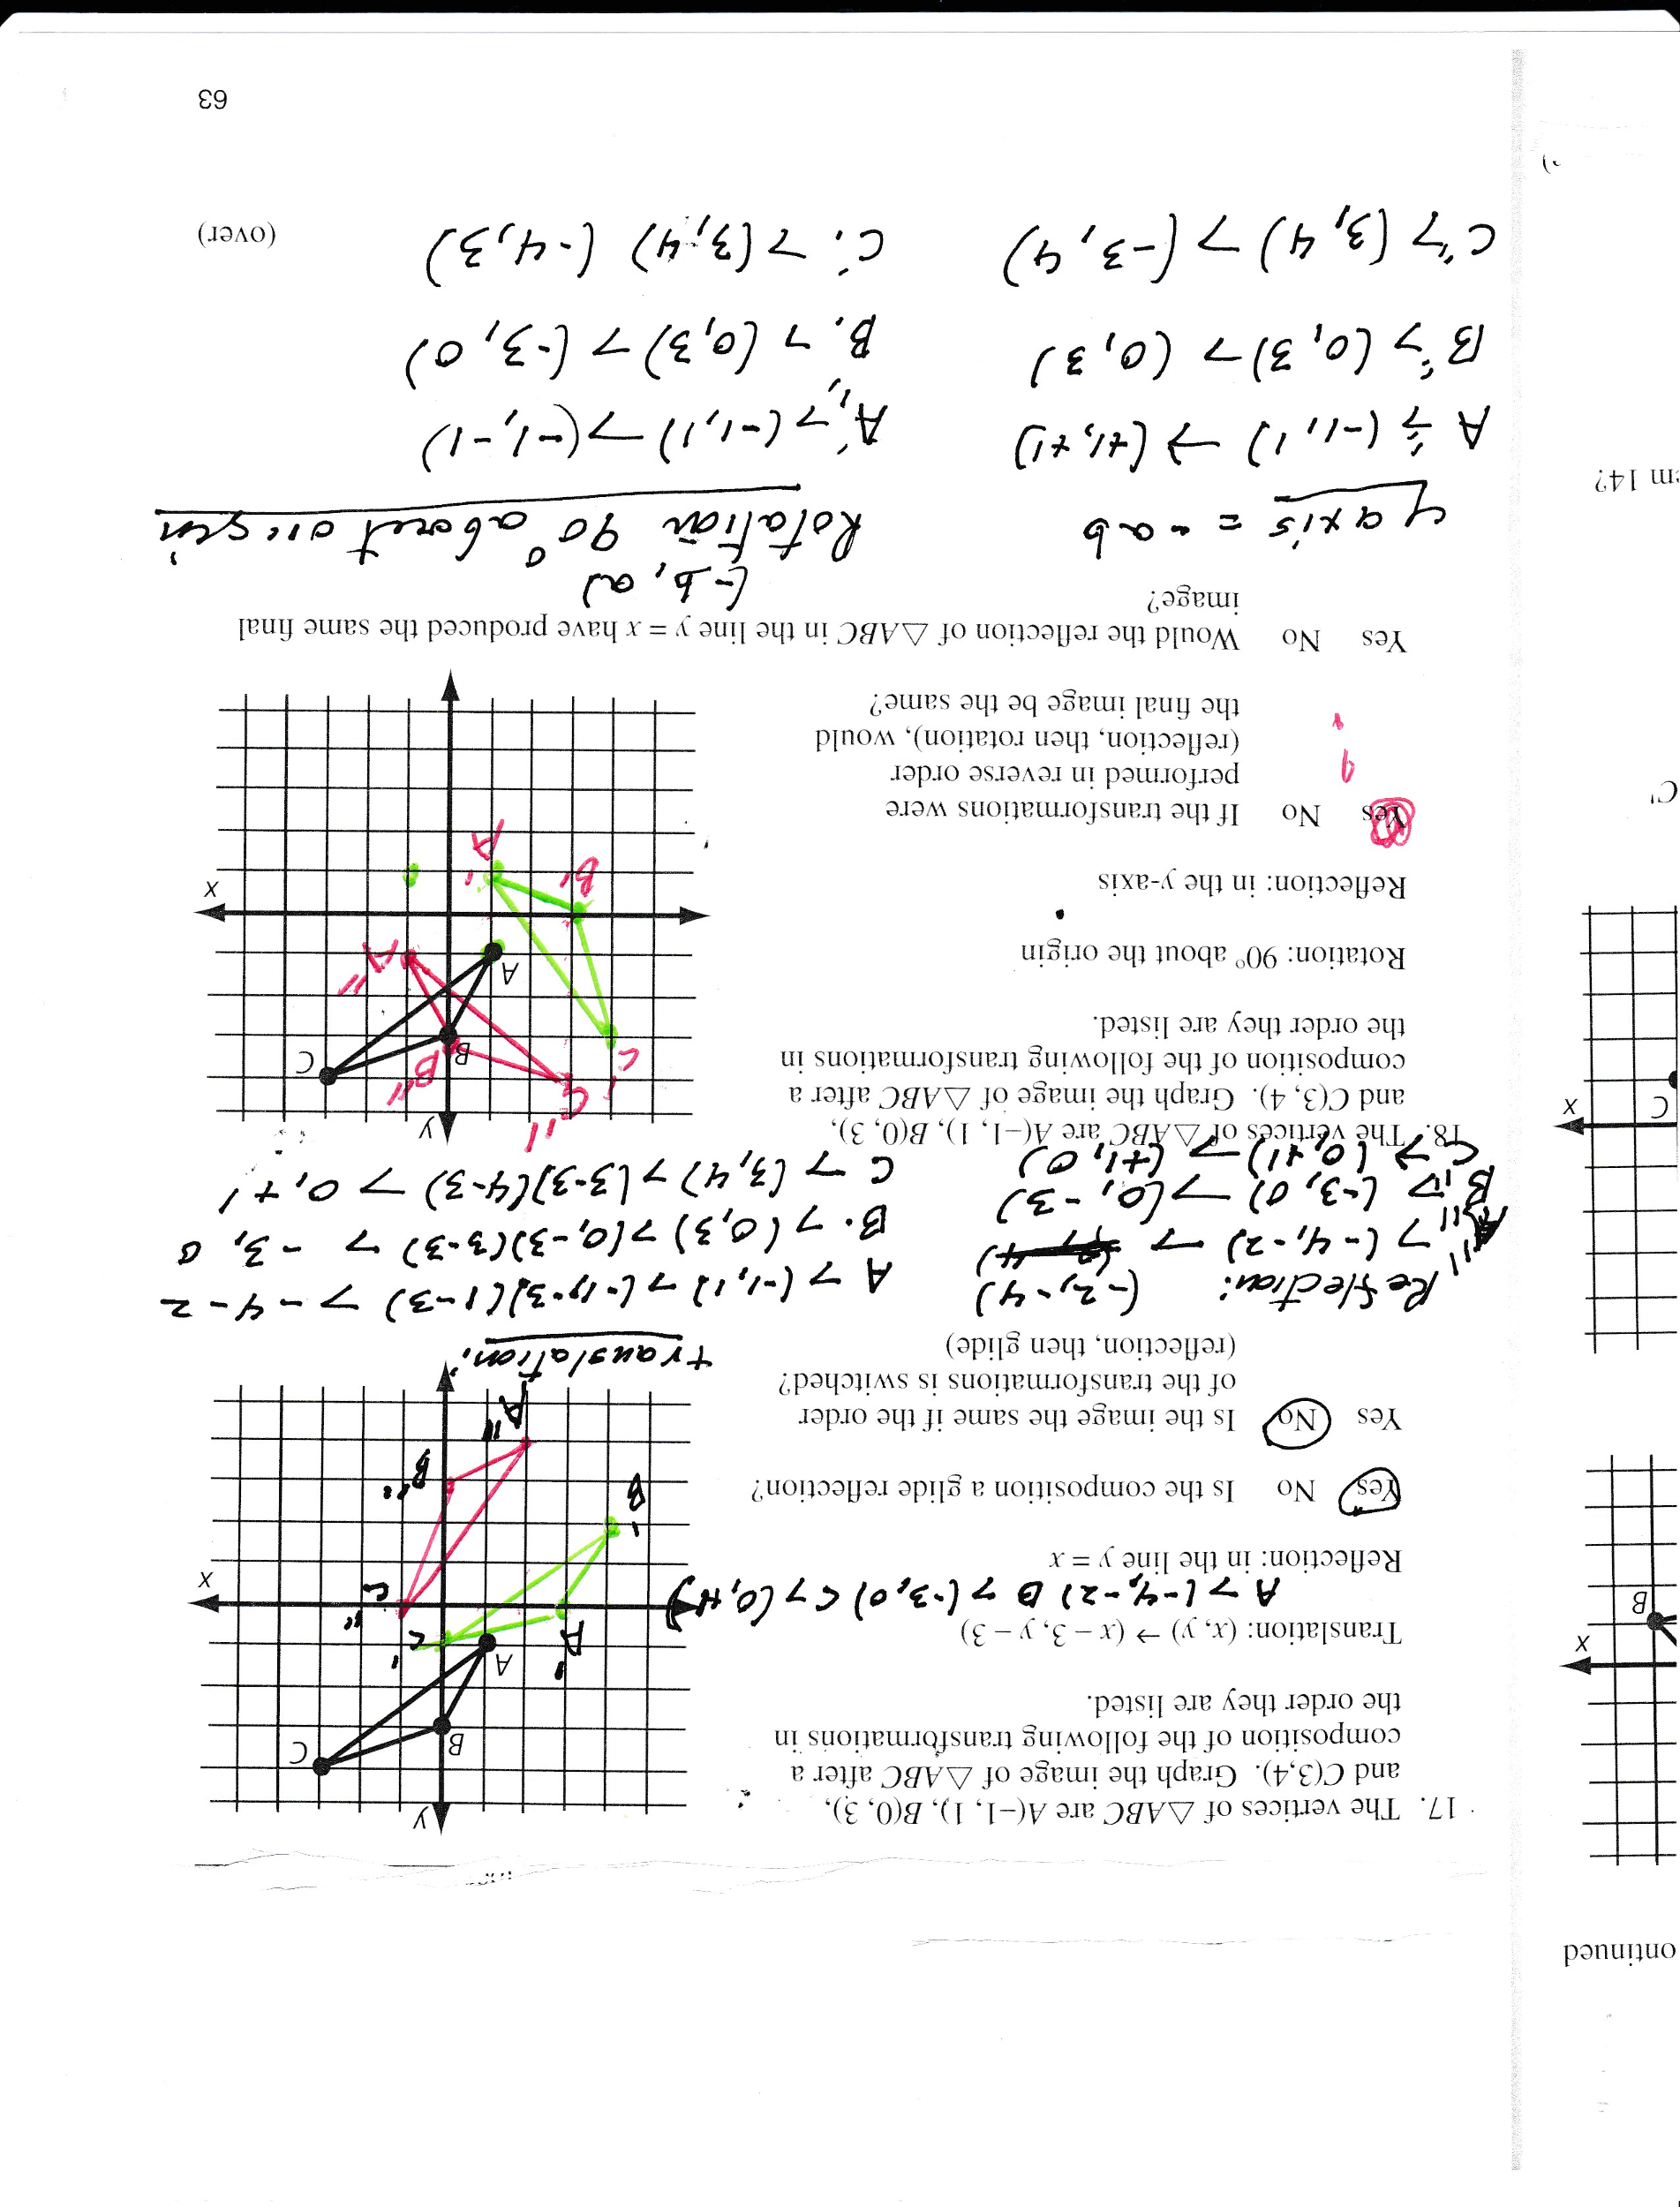 ontinued
17. The vertices of △ABC are A(−1, 1), B(0, 3),
and C(3,4). Graph the image of △ABC after a
composition of the following transformations in
the order they are listed.
Translation: (x, y) → (x − 3, y − 3)
A > (-4,-2) B > (-3, 0) C > (0, +1)
Reflection: in the line y = x
Yes No Is the composition a glide reflection?
Yes No Is the image the same if the order
of the transformations is switched?
(reflection, then glide)
y
C
B
A
A'
C'
x
C''
B'
B''
A''
translation:
Reflection: (-2,-4)
A'' > (-4,-2) >
B'' > (-3, 0) > (0, -3)
C > (0, +1) > (+1, 0)
A > (-1,1) > (-1,-3)(1-3) > -4 -2
B. > (0,3) > (0,-3)(3-3) > -3, 0
C > (3,4) > (3-3)(4-3) > 0, +1
18. The vertices of △ABC are A(−1, 1), B(0, 3),
and C(3, 4). Graph the image of △ABC after a
composition of the following transformations in
the order they are listed.
Rotation: 90° about the origin
Reflection: in the y-axis
Yes No If the transformations were
performed in reverse order
(reflection, then rotation), would
the final image be the same?
y
C''
C'
B''
B
C
A
A''
x
B'
A'
Yes No Would the reflection of △ABC in the line y = x have produced the same final
image?
(-b, a)
y axis = -ab
A'' > (-1, 1) → (+1, +1)
B'' > (0, 3) > (0, 3)
C'' > (3, 4) > (-3, 4)
Rotation 90° about origin
A' > (-1, 1) > (-1, -1)
B' > (0, 3) > (-3, 0)
C' > (3, 4) (-4, 3)
(over)
63
B
x
C
x
C'
em 14?